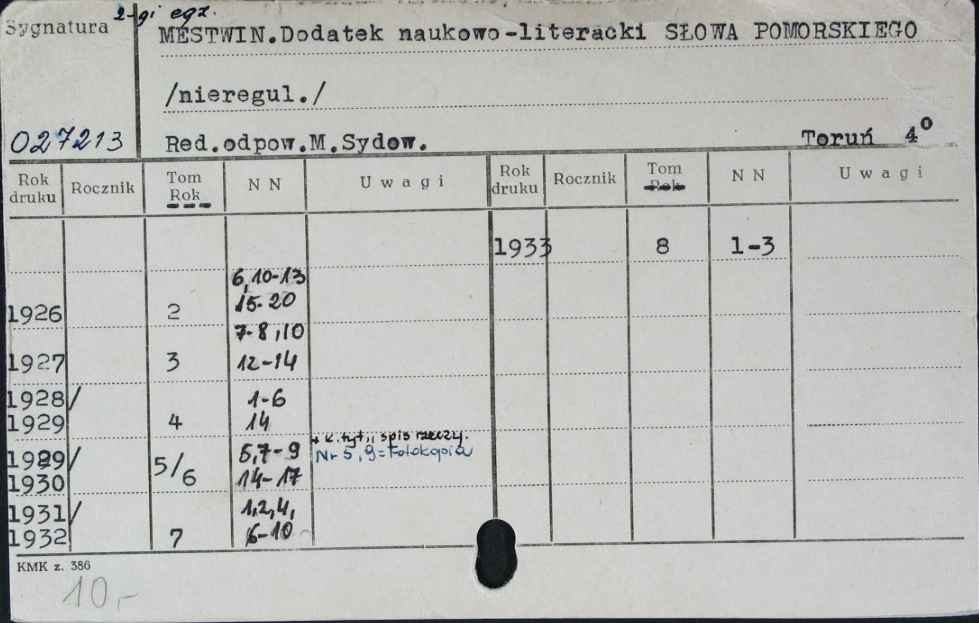 2-gi egz.
Sygnatura
MESTWIN.Dodatek naukowo-literacki SŁOWA POMORSKIEGO
/nieregul./
027213 Red.odpow.M.Sydow. Toruń 4°
Rok druku Rocznik Tom Rok NN Uwagi Rok druku Rocznik Tom Rok NN Uwagi
1933 8 1-3
6,10-13
1926 2 15-20
7-8,10
1927 3 12-14
1928/ 1-6
1929 4 14
+ k. tyt., spis rzeczy.
1929/ 5/6 5,7-9 Nr 5,9=Fotokopia
1930 14-17
1931/ 1,2,4,
1932 7 6-10
KMK z. 386
10,-